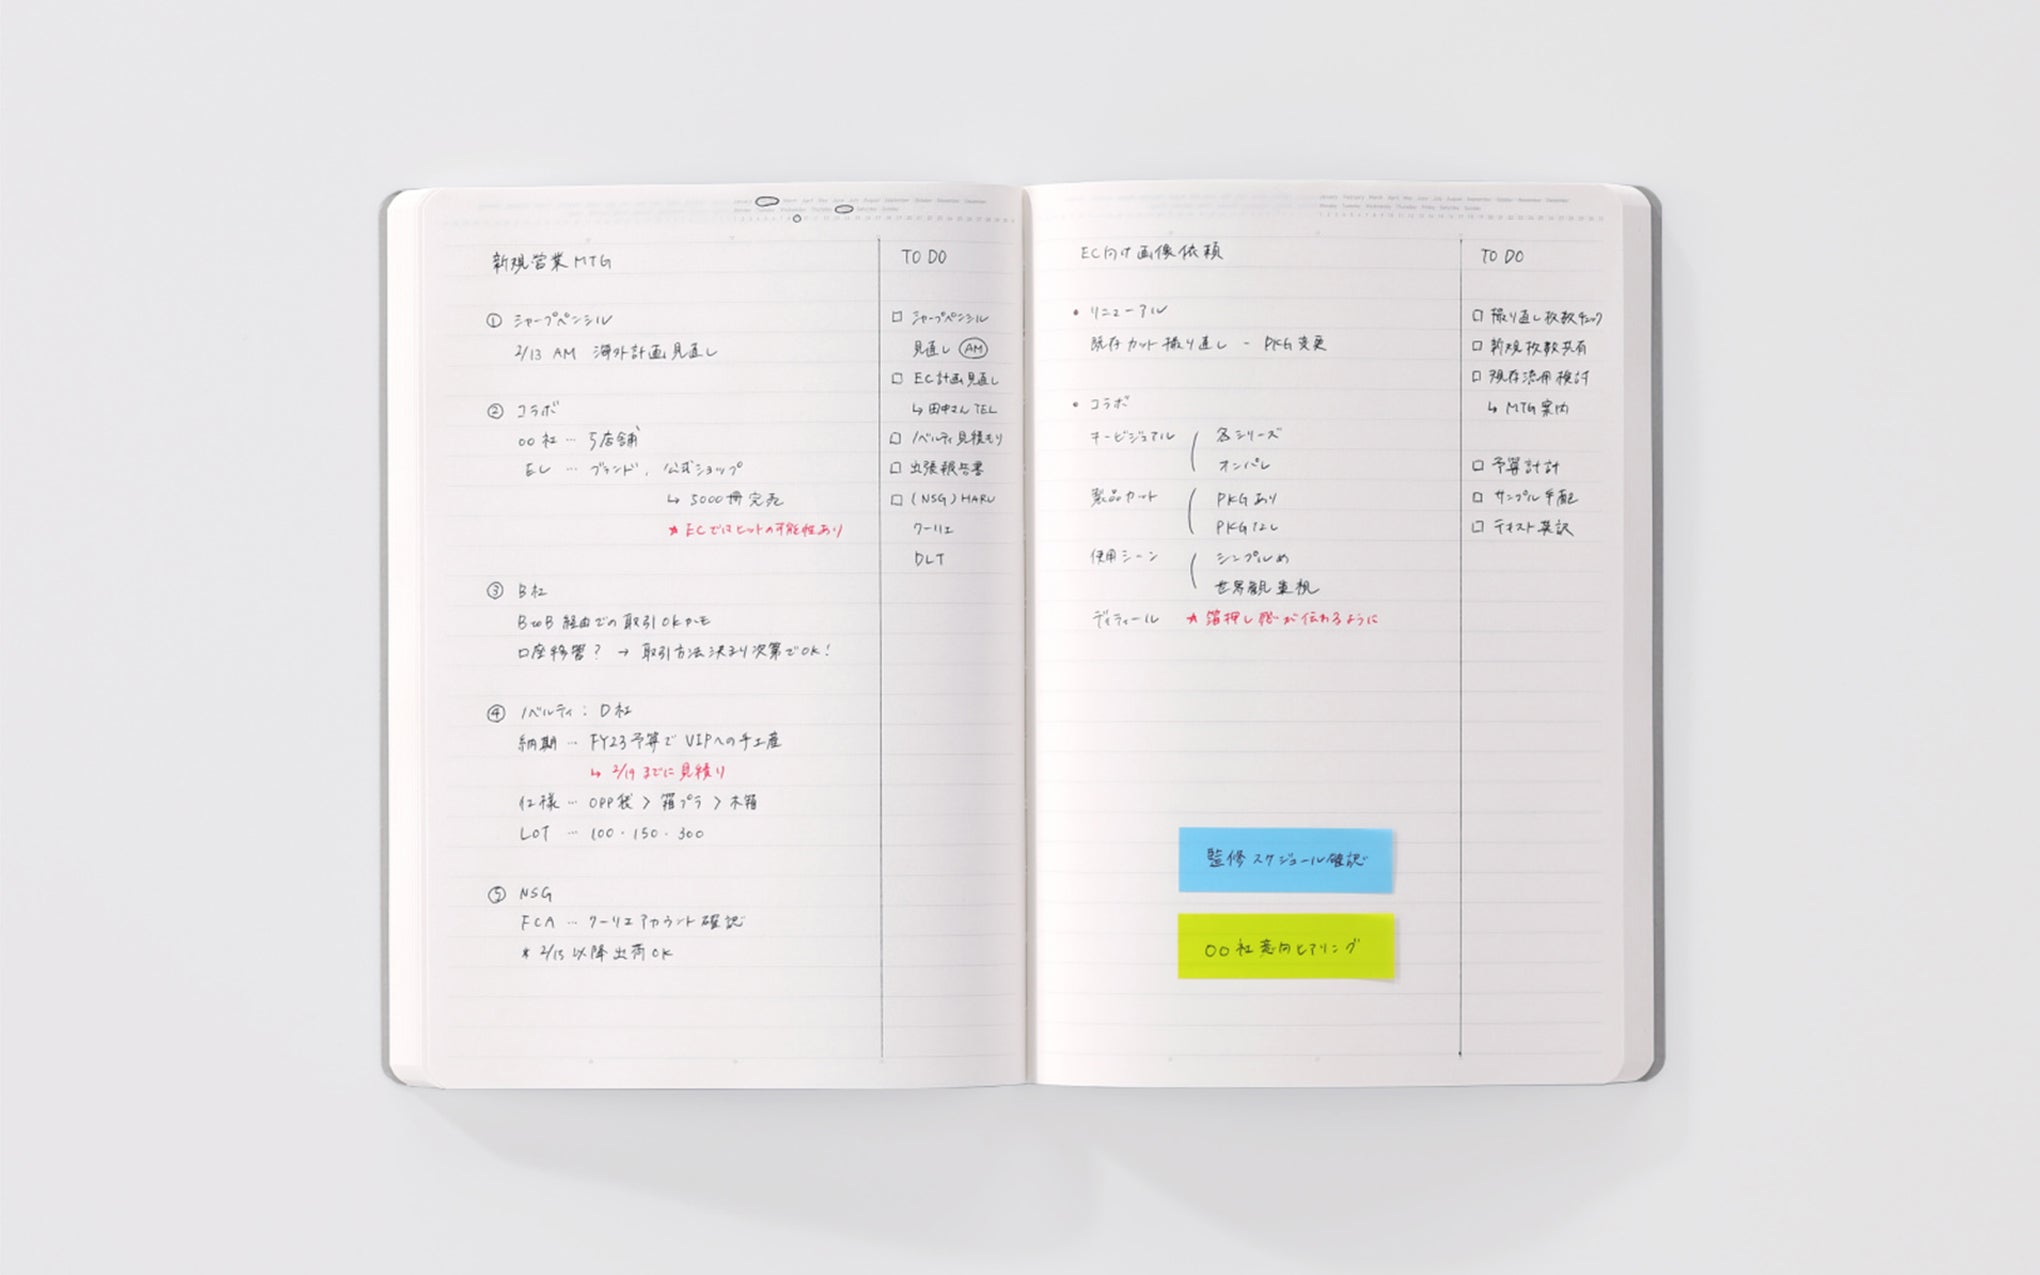 January February March April May June July August September October November December
Monday Tuesday Wednesday Thursday Friday Saturday Sunday
新規営業MTG
① シャープペンシル
2/13 AM 海外計画見直し
② コラボ
○○社 … 5店舗
EL … ブランド、公式ショップ
↳ 5000冊完売
★ECではヒットの可能性あり
③ B社
BtoB 経由での取引OKかも
口座移管? → 取引方法決まり次第でOK!
④ ノベルティ: D社
納期 … FY23予算でVIPへの手土産
↳ 2/19までに見積り
仕様 … OPP袋 > 箱プラ > 木箱
LOT … 100・150・300
⑤ NSG
FCA … クーリエアカウント確認
* 2/15以降出荷OK
TO DO
□ シャープペンシル
見直し AM
□ EC計画見直し
↳ 田中さんTEL
□ ノベルティ見積もり
□ 出張報告書
□ (NSG) HARU
クーリエ
DLT
January February March April May June July August September October November December
Monday Tuesday Wednesday Thursday Friday Saturday Sunday
EC向け画像依頼
・リニューアル
既存カット撮り直し - PKG変更
・コラボ
キービジュアル ( 各シリーズ
オンパレ
製品カット ( PKGあり
PKGなし
使用シーン ( シンプルめ
世界観重視
ディティール ★箔押し感が伝わるように
監修スケジュール確認
○○社意向ヒアリング
TO DO
□ 撮り直し枚数チェック
□ 新規枚数共有
□ 現存流用検討
↳ MTG案内
□ 予算計計
□ サンプル手配
□ テキスト英訳